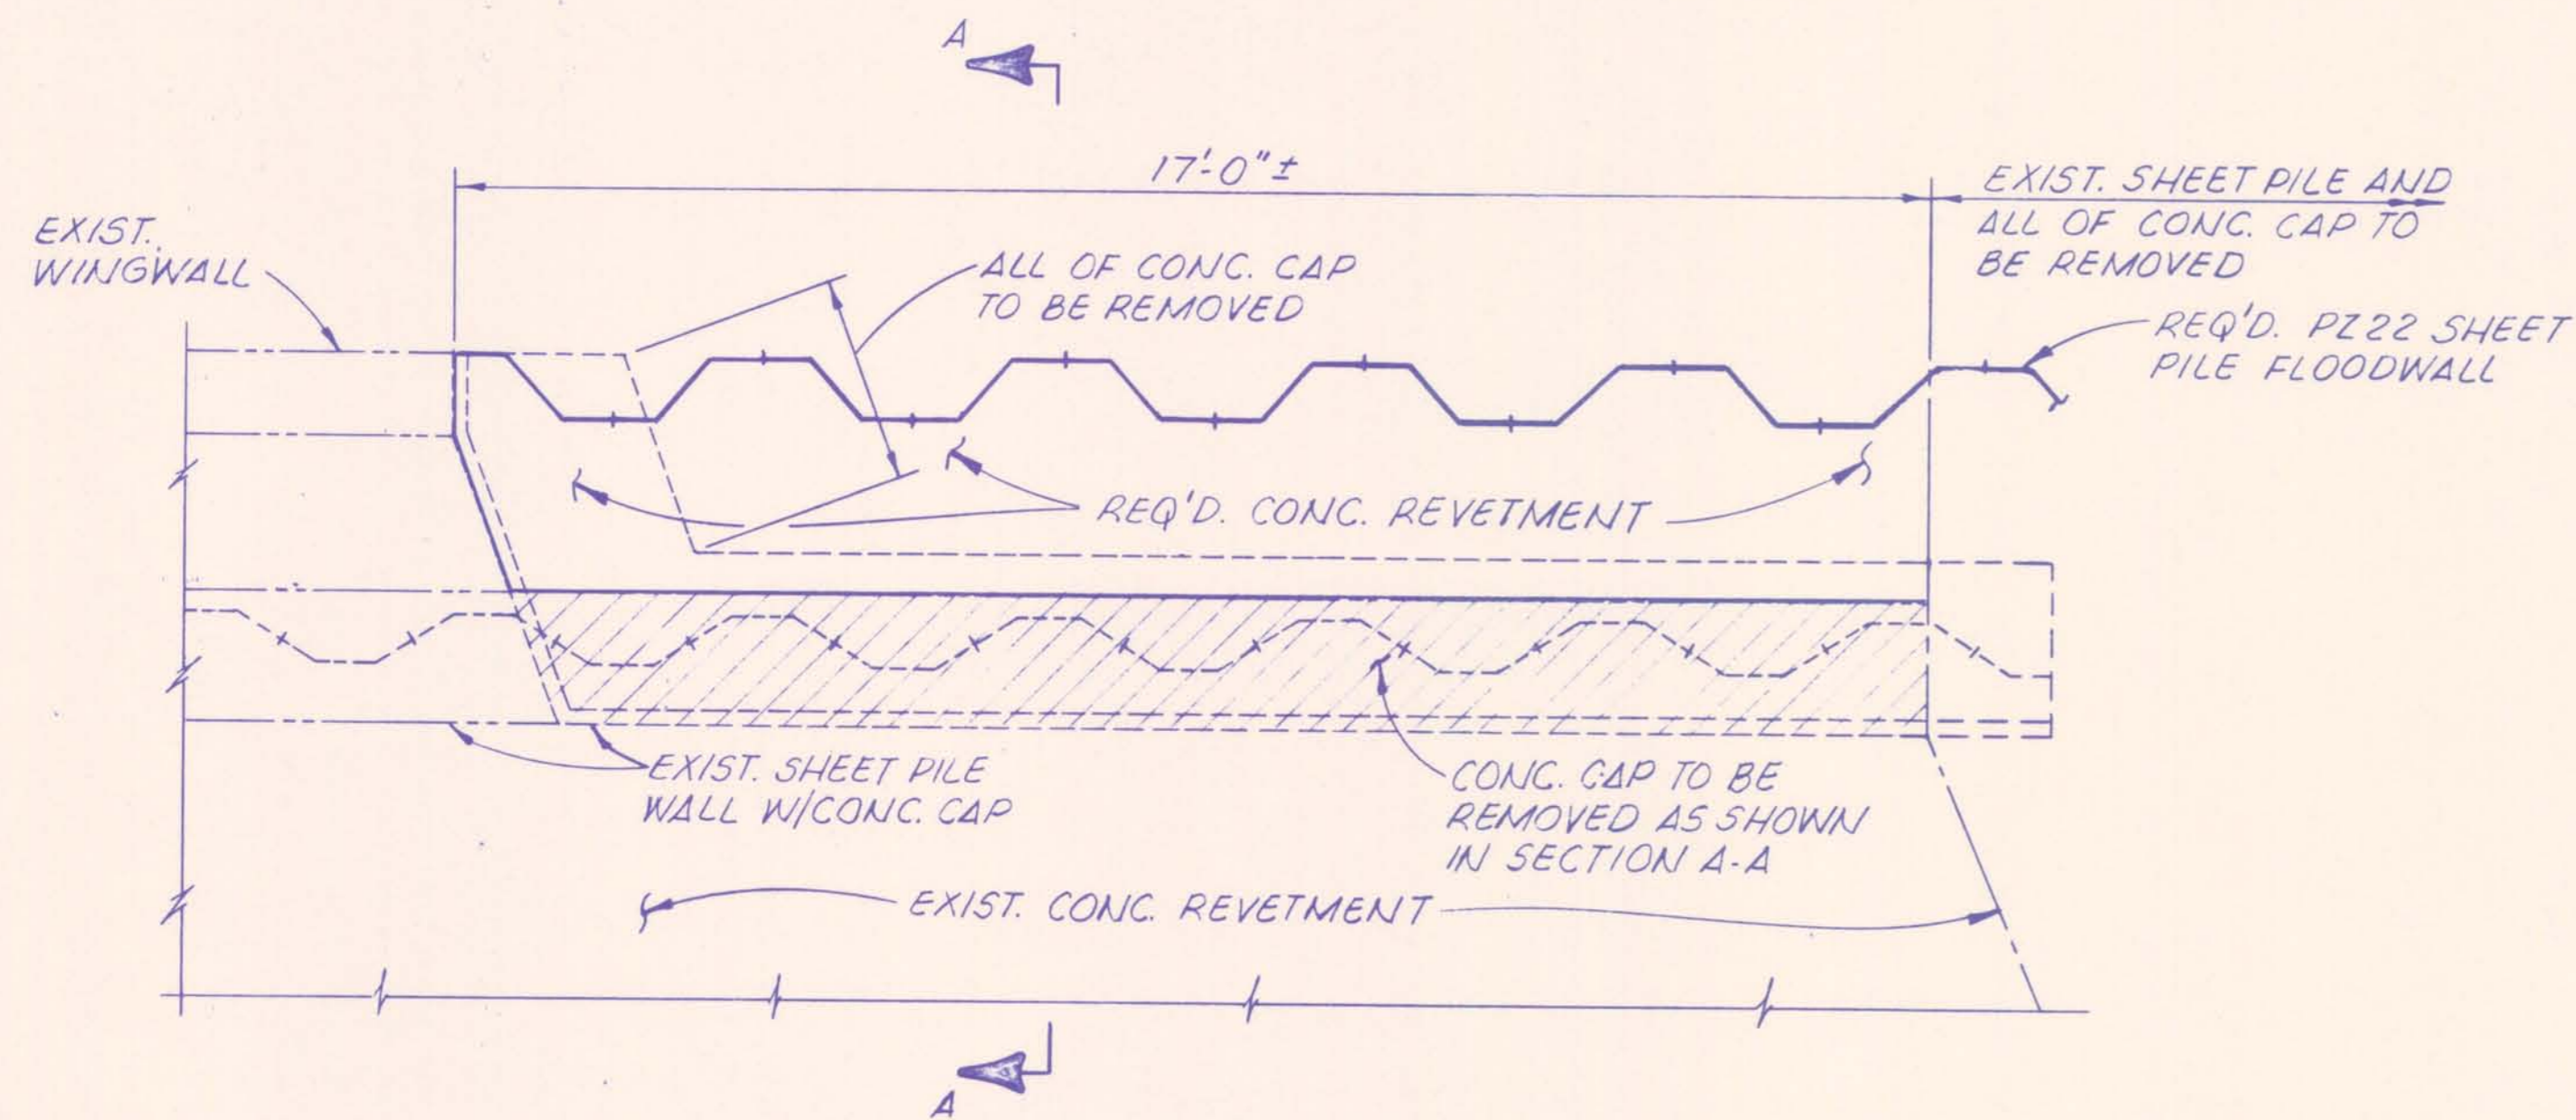 A
17'-0" ±
EXIST. SHEET PILE AND
ALL OF CONC. CAP TO
BE REMOVED
EXIST.
WINGWALL
ALL OF CONC. CAP
TO BE REMOVED
REQ'D. PZ22 SHEET
PILE FLOODWALL
REQ'D. CONC. REVETMENT
EXIST. SHEET PILE
WALL W/CONC. CAP
CONC. CAP TO BE
REMOVED AS SHOWN
IN SECTION A-A
EXIST. CONC. REVETMENT
A